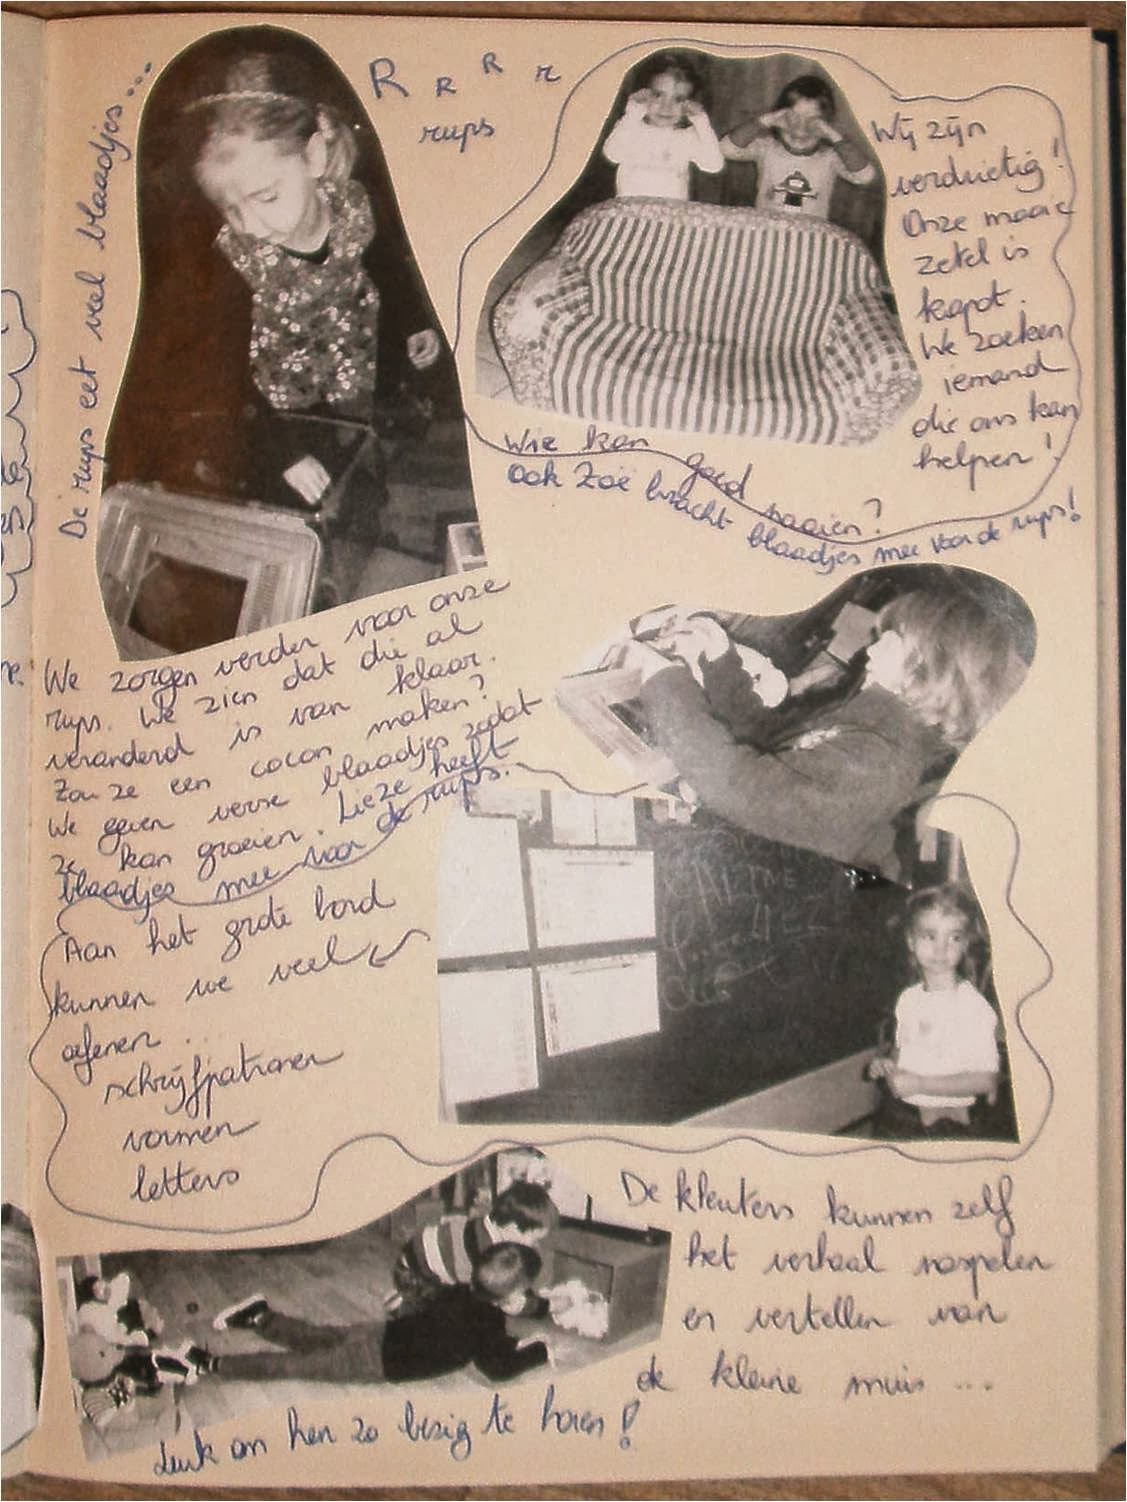 De rups eet veel blaadjes...
R R R r
rups
Wij zijn
verdrietig!
Onze mooie
zetel is
kapot.
We zoeken
iemand
die ons kan
helpen!
Wie kan goed naaien?
Ook Zoë bracht blaadjes mee voor de rups!
We zorgen verder voor onze
rups. We zien dat die al
veranderd is van kleur.
Zou ze een cocon maken?
We geven verse blaadjes zodat
ze kan groeien. Lieze heeft
blaadjes mee voor de rups.
Aan het grote bord
kunnen we veel
oefenen...
schrijfpatronen
vormen
letters
De kleuters kunnen zelf
het verhaal naspelen
en vertellen van
de kleine muis ...
Leuk om hen zo bezig te horen!